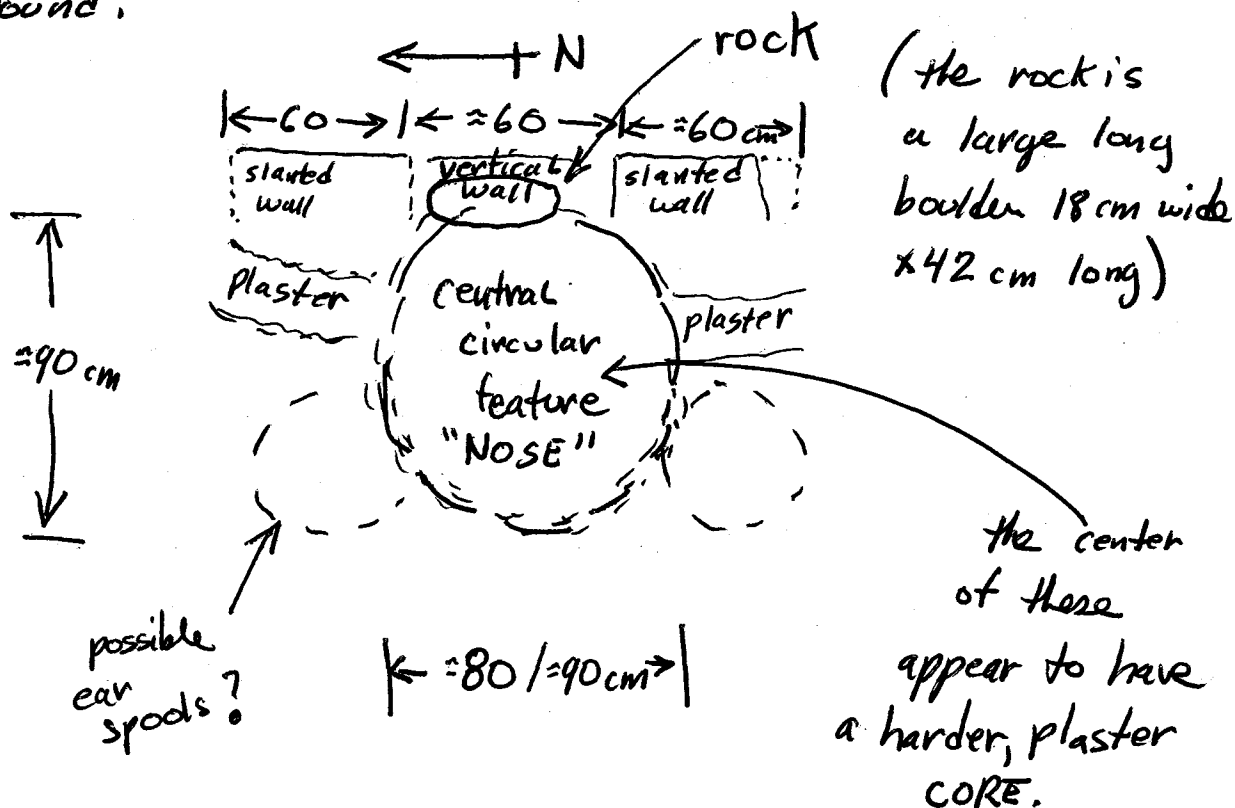 ound.
N
rock
(the rock is
a large long
boulder 18 cm wide
x42 cm long)
60
≈60
≈60 cm
slanted
wall
vertical
wall
slanted
wall
≈90 cm
Plaster
central
circular
feature
"NOSE"
plaster
possible
ear
spools?
≈80/≈90cm
the center
of these
appear to have
a harder, plaster
CORE.